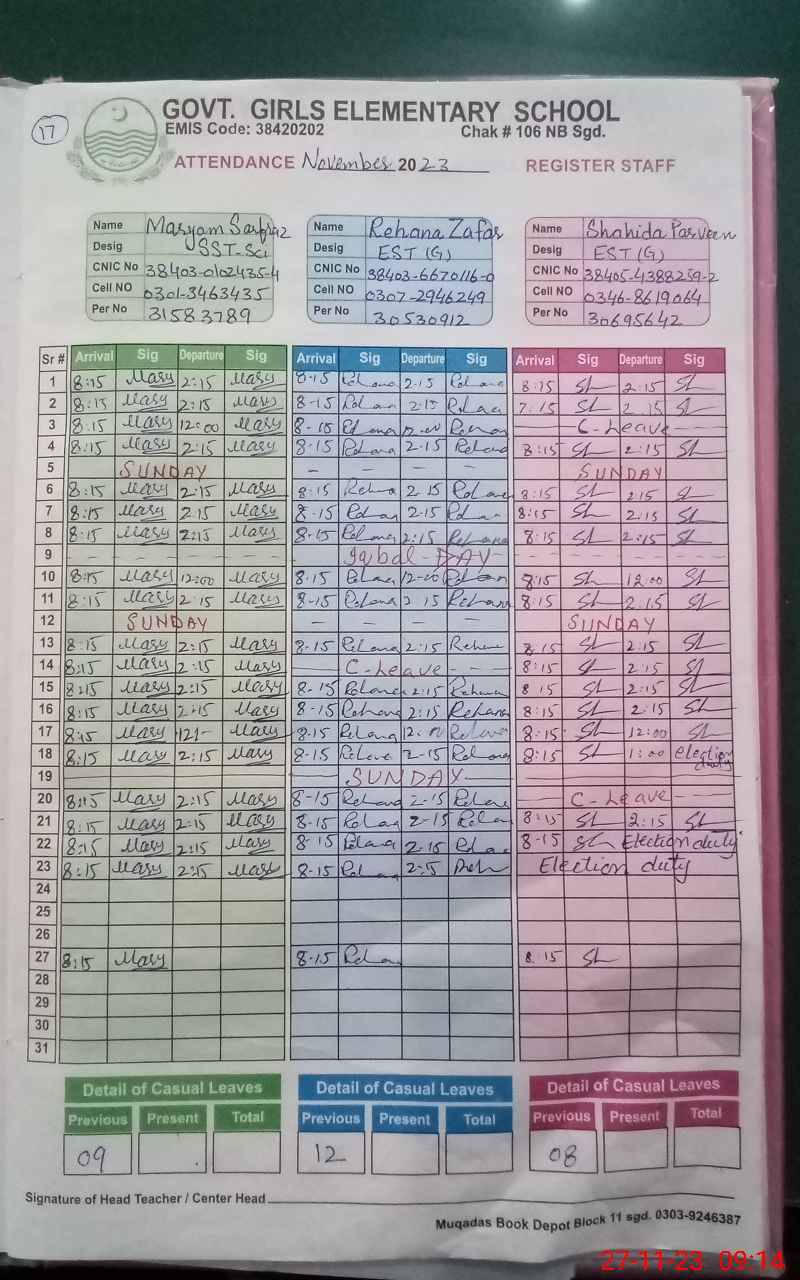 17
GOVT. GIRLS ELEMENTARY SCHOOL
EMIS Code: 38420202 Chak # 106 NB Sgd.
ATTENDANCE November 2023 REGISTER STAFF
Name Maryam Sarfraz Name Rehana Zafar Name Shahida Parveen
Desig SST-Sci Desig EST (G) Desig EST (G)
CNIC No 38403-0102435-4 CNIC No 38403-6670116-0 CNIC No 38405-4388259-2
Cell NO 0301-3463435 Cell NO 0307-2946249 Cell NO 0346-8619064
Per No 31583789 Per No 30530912 Per No 30695642
Sr # Arrival Sig Departure Sig Arrival Sig Departure Sig Arrival Sig Departure Sig
1 8:15 Mary 2:15 Mary 8-15 Rehana 2-15 Rehana 8:15 2:15
2 8:15 Mary 2:15 Mary 8-15 Rehana 2-15 7:15 2 15
3 8:15 Mary 12:00 Mary 8-15 Rehana 12-00 Rehana C-Leave
4 8:15 Mary 2:15 Mary 8-15 Rehana 2-15 Rehana 8:15 2:15
5 SUNDAY - - - - SUNDAY
6 8:15 Mary 2:15 Mary 8:15 Rehana 2 15 Rehana 8:15 2:15
7 8:15 Mary 2:15 Mary 8-15 Rehana 2-15 Rehana 8:15 2:15
8 8:15 Mary 2:15 Mary 8-15 Rehana 2:15 Rehana 8:15 2:15
9 Iqbal-DAY
10 8:15 Mary 12:00 Mary 8-15 Rehana 12-00 Rehana 8:15 12:00
11 8:15 Mary 2:15 Mary 8-15 Rehana 2 15 Rehana 8:15 2:15
12 SUNDAY - - - - SUNDAY
13 8:15 Mary 2:15 Mary 8-15 Rehana 2:15 Rehana 8:15 2:15
14 8:15 Mary 2:15 Mary C-Leave 8:15 2:15
15 8:15 Mary 2:15 Mary 8-15 Rehana 2:15 Rehana 8 15 2:15
16 8:15 Mary 2:15 Mary 8-15 Rehana 2:15 Rehana 8:15 2:15
17 8:15 Mary Mary 8-15 Rehana 12:00 Rehana 8:15 12:00
18 8:15 Mary 2:15 Mary 8-15 Rehana 2-15 Rehana 8:15 1:00 election duty
19 SUNDAY
20 8:15 Mary 2:15 Mary 8-15 Rehana 2-15 Rehana C-Leave
21 8:15 Mary 2:15 Mary 8-15 Rehana 2-15 Rehana 8:15 2:15
22 8:15 Mary 2:15 Mary 8-15 Rehana 2-15 Rehana 8-15 Election duty
23 8:15 Mary 2:15 Mary 8-15 Rehana 2:15 Election duty
24
25
26
27 8:15 Mary 8-15 Rehana 8:15
28
29
30
31
Detail of Casual Leaves Detail of Casual Leaves Detail of Casual Leaves
Previous Present Total Previous Present Total Previous Present Total
09 12 08
Signature of Head Teacher / Center Head
Muqadas Book Depot Block 11 sgd. 0303-9246387
27-11-23 09:14